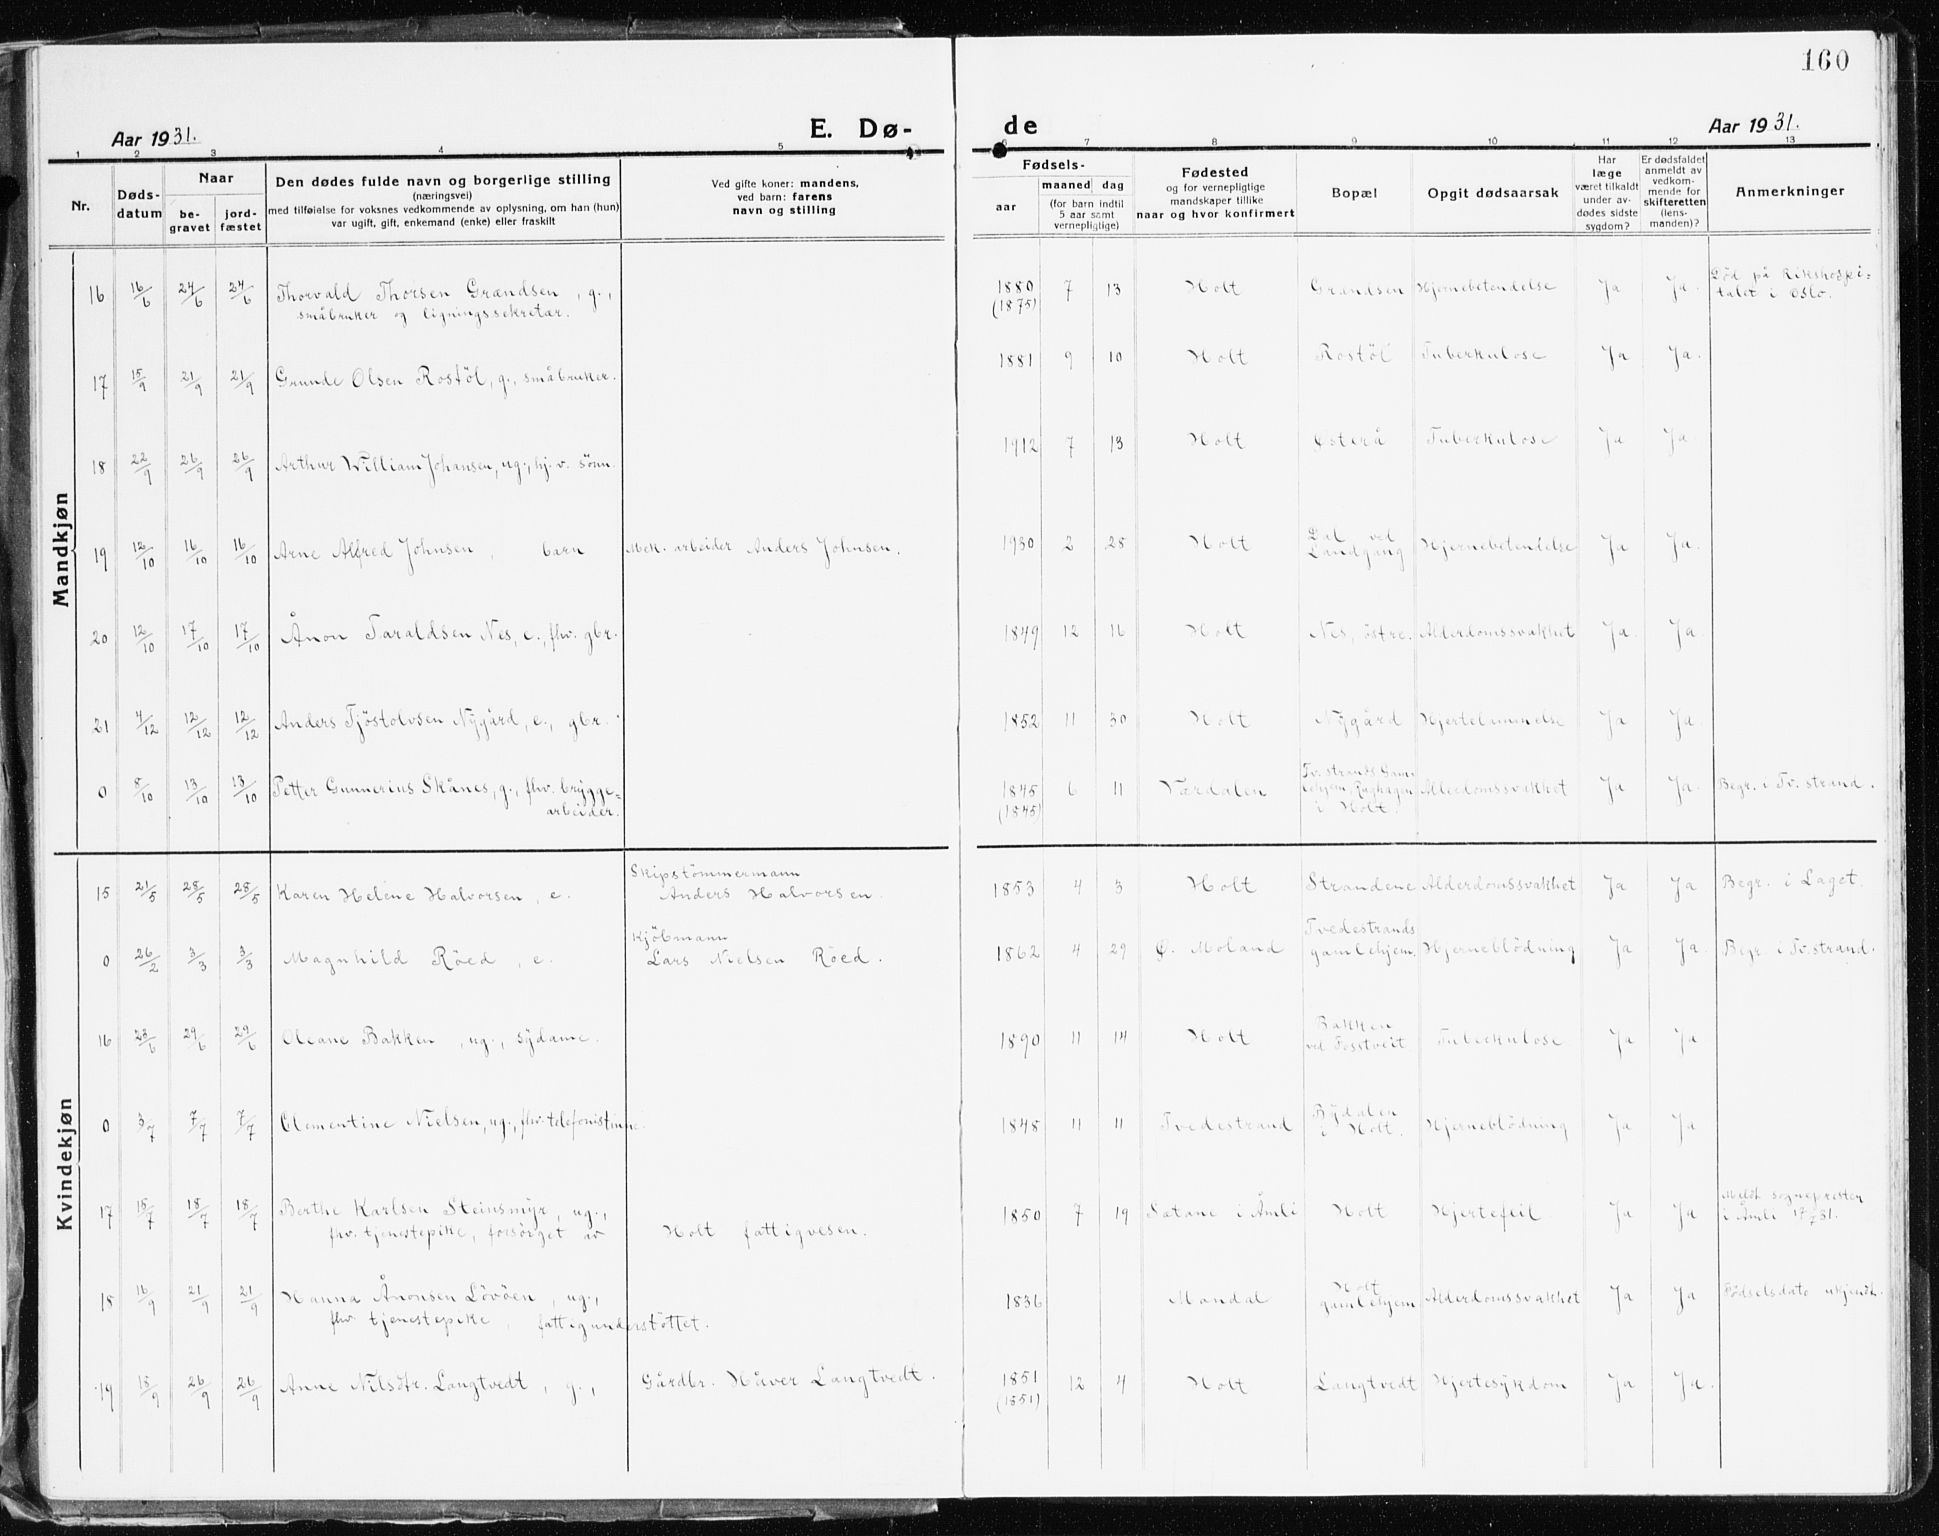 160
Aar 1931.
E. Dø-
de
Aar 1931.
1 2 3 4 5 6 7 8 9 10 11 12 13
Nr.
Døds-
datum
Naar
be-
gravet
jord-
fæstet
Den dødes fulde navn og borgerlige stilling
(næringsvei)
med tilføielse for voksnes vedkommende av oplysning, om han (hun)
var ugift, gift, enkemand (enke) eller fraskilt
Ved gifte koner: mandens,
ved barn: farens
navn og stilling
Fødsels-
aar
maaned dag
(for barn indtil
5 aar samt
vernepligtige)
Fødested
og for vernepligtige
mandskaper tillike
naar og hvor konfirmert
Bopæl
Opgit dødsaarsak
Har
læge
været tilkaldt
under av-
dødes sidste
sygdom?
Er dødsfaldet
anmeldt av
vedkom-
mende for
skifteretten
(lens-
manden)?
Anmerkninger
Mandkjøn
16 16/6 24/6 24/6 Thorvald Thorsen Grændsen, g., 1880 7 13 Holt Grændsen Hjernebetendelse Ja Ja. Död på Rikshospi-
småbruker og ligningssekretær. (1875) talet i Oslo.
17 15/9 21/9 21/9 Grunde Olsen Rostöl, g., småbruker. 1881 9 10 Holt Rostöl Tuberkulose Ja Ja.
18 22/9 26/9 26/9 Arthur William Johansen, ug., hj. v. sönn. 1912 7 13 Holt Østerå Tuberkulose Ja Ja.
19 12/10 16/10 16/10 Arne Alfred Johnsen, barn Mek. arbeider Anders Johnsen. 1930 2 28 Holt Dal ved
Landgang Hjernebetendelse Ja Ja.
20 12/10 17/10 17/10 Ånon Taraldsen Nes, e., fhv. gbr. 1849 12 16 Holt Nes, östre. Alderdomssvakhet Ja Ja.
21 4/12 12/12 12/12 Anders Tjöstolvsen Nygård, e., gbr. 1852 11 30 Holt Nygård Hjertelammelse Ja Ja.
0 8/10 13/10 13/10 Petter Gunnerius Skånes, g., fhv. brygge=
arbeider. 1845 6 11 Værdalen Tv.strands Gam-
(1845) i Holt. Alderdomssvakhet Ja Ja. Begr. i Tv.strand.
Kvindekjøn
15 21/5 28/5 28/5 Karen Helene Halvorsen, e. Skipstömmermann
Anders Halvorsen. 1853 4 3 Holt Strandene Alderdomssvakhet Ja Ja Begr. i Laget.
0 26/2 3/3 3/3 Magnhild Röed, e. Kjöbmann
Lars Nielsen Röed. 1862 4 29 Ø. Moland Tvedestrands
gamlehjem Hjerneblödning Ja Ja. Begr. i Tv.strand.
16 23/6 29/6 29/6 Oleane Bakken, ug., sydame. 1890 11 14 Holt Bakken
ved Fosstveit Tuberkulose. Ja Ja
0 3/7 7/7 7/7 Clementine Nielsen, ug., fhv. telefonistinne. 1848 11 11 Tvedestrand Bydalen
i Holt. Hjerneblödning Ja Ja
17 15/7 18/7 18/7 Berthe Karlsen Steinsmyr, ug., 1850 7 19 Satane i Åmli Holt Hjertefeil. Ja Ja Meldt sogneprester
fhv. tjenestepike, forsörget av Holt fattigvesen. i Åmli 17/7 31.
18 16/9 21/9 21/9 Hanna Ånonsen Lövöen, ug., 1836 Mandal Holt
gamlehjem Alderdomssvakhet Ja Ja Födselsdato ukjendt.
fhv. tjenestepike, fattigunderstöttet.
19 18/9 26/9 26/9 Anne Nilsdtr. Langtvedt, g., Gårdbr. Håver Langtvedt. 1851 12 4 Holt Langtvedt Hjertesykdom Ja Ja.
(1851)